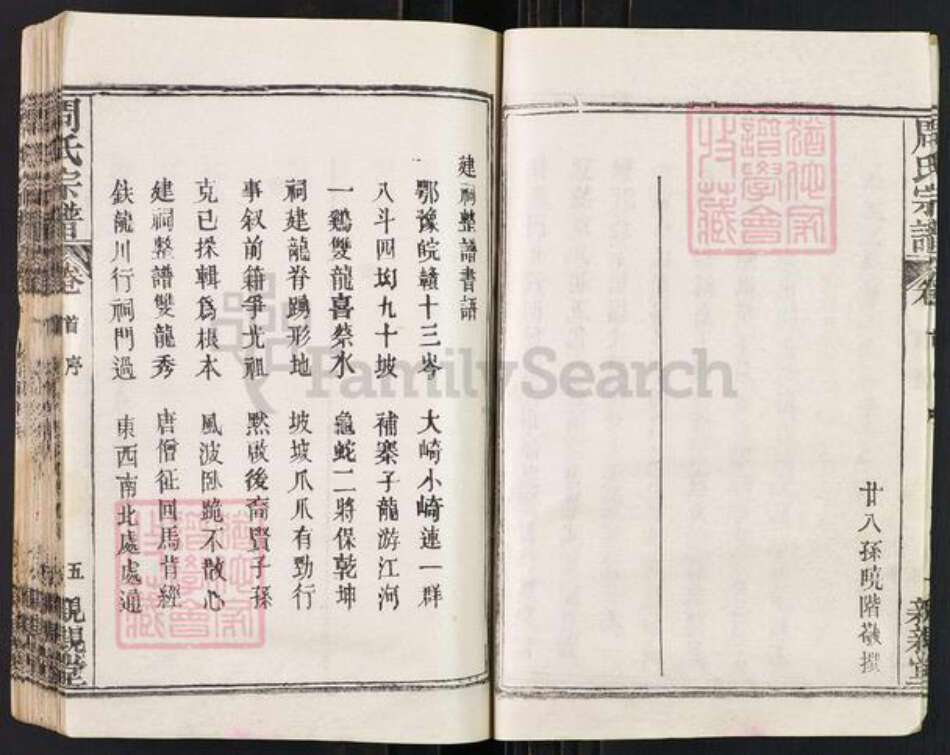 周氏宗譜
卷
親親堂
廿八孫曉階敬撰
建祠整譜書語
鄂豫皖贛十三岑 大崎小崎連一群
八斗四㘭九十坡 補寨子龍游江河
一鷄雙龍喜祭水 龜蛇二將保乾坤
祠建龍脊踴形地 坡坡爪爪有勁行
事叙前籍爭光祖 黙啟後裔賢子孫
克已採輯爲根本 風波卧跪不散心
建祠整譜雙龍秀 唐僧征回馬昔經
鉄龍川行祠門過 東西南北處處通
周氏宗譜
卷
首
序
五
親親堂
譜學會
收藏
FamilySearch